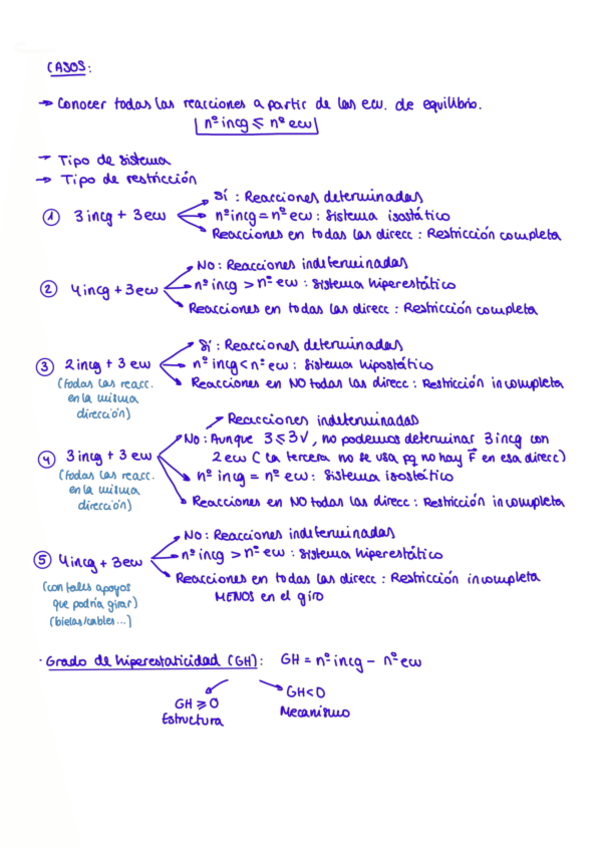 CASOS:
→ Conocer todas las reacciones a partir de las ecu. de equilibrio.
nº incg ≤ nº ecu
→ Tipo de sistema
→ Tipo de restricción
① 3 incg + 3 ecu
Sí : Reacciones determinadas
nº incg = nº ecu : Sistema isostático
Reacciones en todas las direcc : Restricción completa
② 4 incg + 3 ecu
No : Reacciones indeterminadas
nº incg > nº ecu : Sistema hiperestático
Reacciones en todas las direcc : Restricción completa
③ 2 incg + 3 ecu
(todas las reacc.
en la misma
dirección)
Sí : Reacciones determinadas
nº incg < nº ecu : Sistema hipostático
Reacciones en NO todas las direcc : Restricción incompleta
④ 3 incg + 3 ecu
(todas las reacc.
en la misma
dirección)
Reacciones indeterminadas
No : Aunque 3 ≤ 3 V, no podemos determinar 3 incg con
2 ecu (la tercera no se usa pq no hay F en esa direcc)
nº incg = nº ecu : Sistema isostático
Reacciones en NO todas las direcc : Restricción incompleta
⑤ 4 incg + 3 ecu
(con tales apoyos
que podría girar)
(bielas/cables...)
No : Reacciones indeterminadas
nº incg > nº ecu : Sistema hiperestático
Reacciones en todas las direcc : Restricción incompleta
MENOS en el giro
· Grado de hiperestaticidad (GH): GH = nº incg - nº ecu
GH ≥ 0
Estructura
GH < 0
Mecanismo